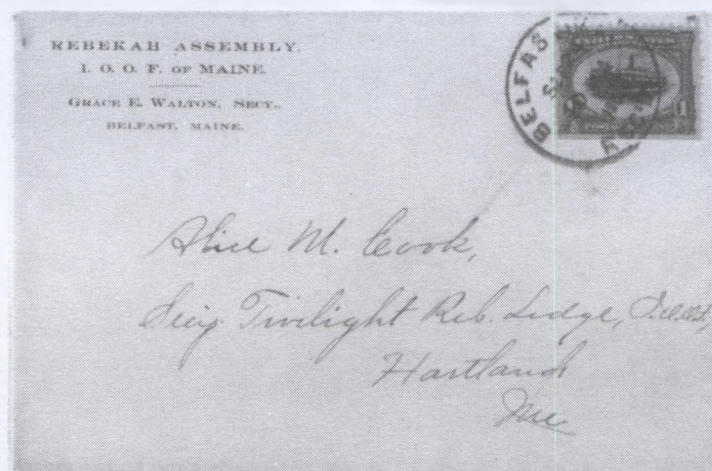 REBEKAH ASSEMBLY.
I. O. O. F. OF MAINE.
GRACE E. WALTON, SECY.,
BELFAST, MAINE.
BELFAS
1
Alice M. Cook,
Secy. Twilight Reb. Lodge,
Hartland
Me